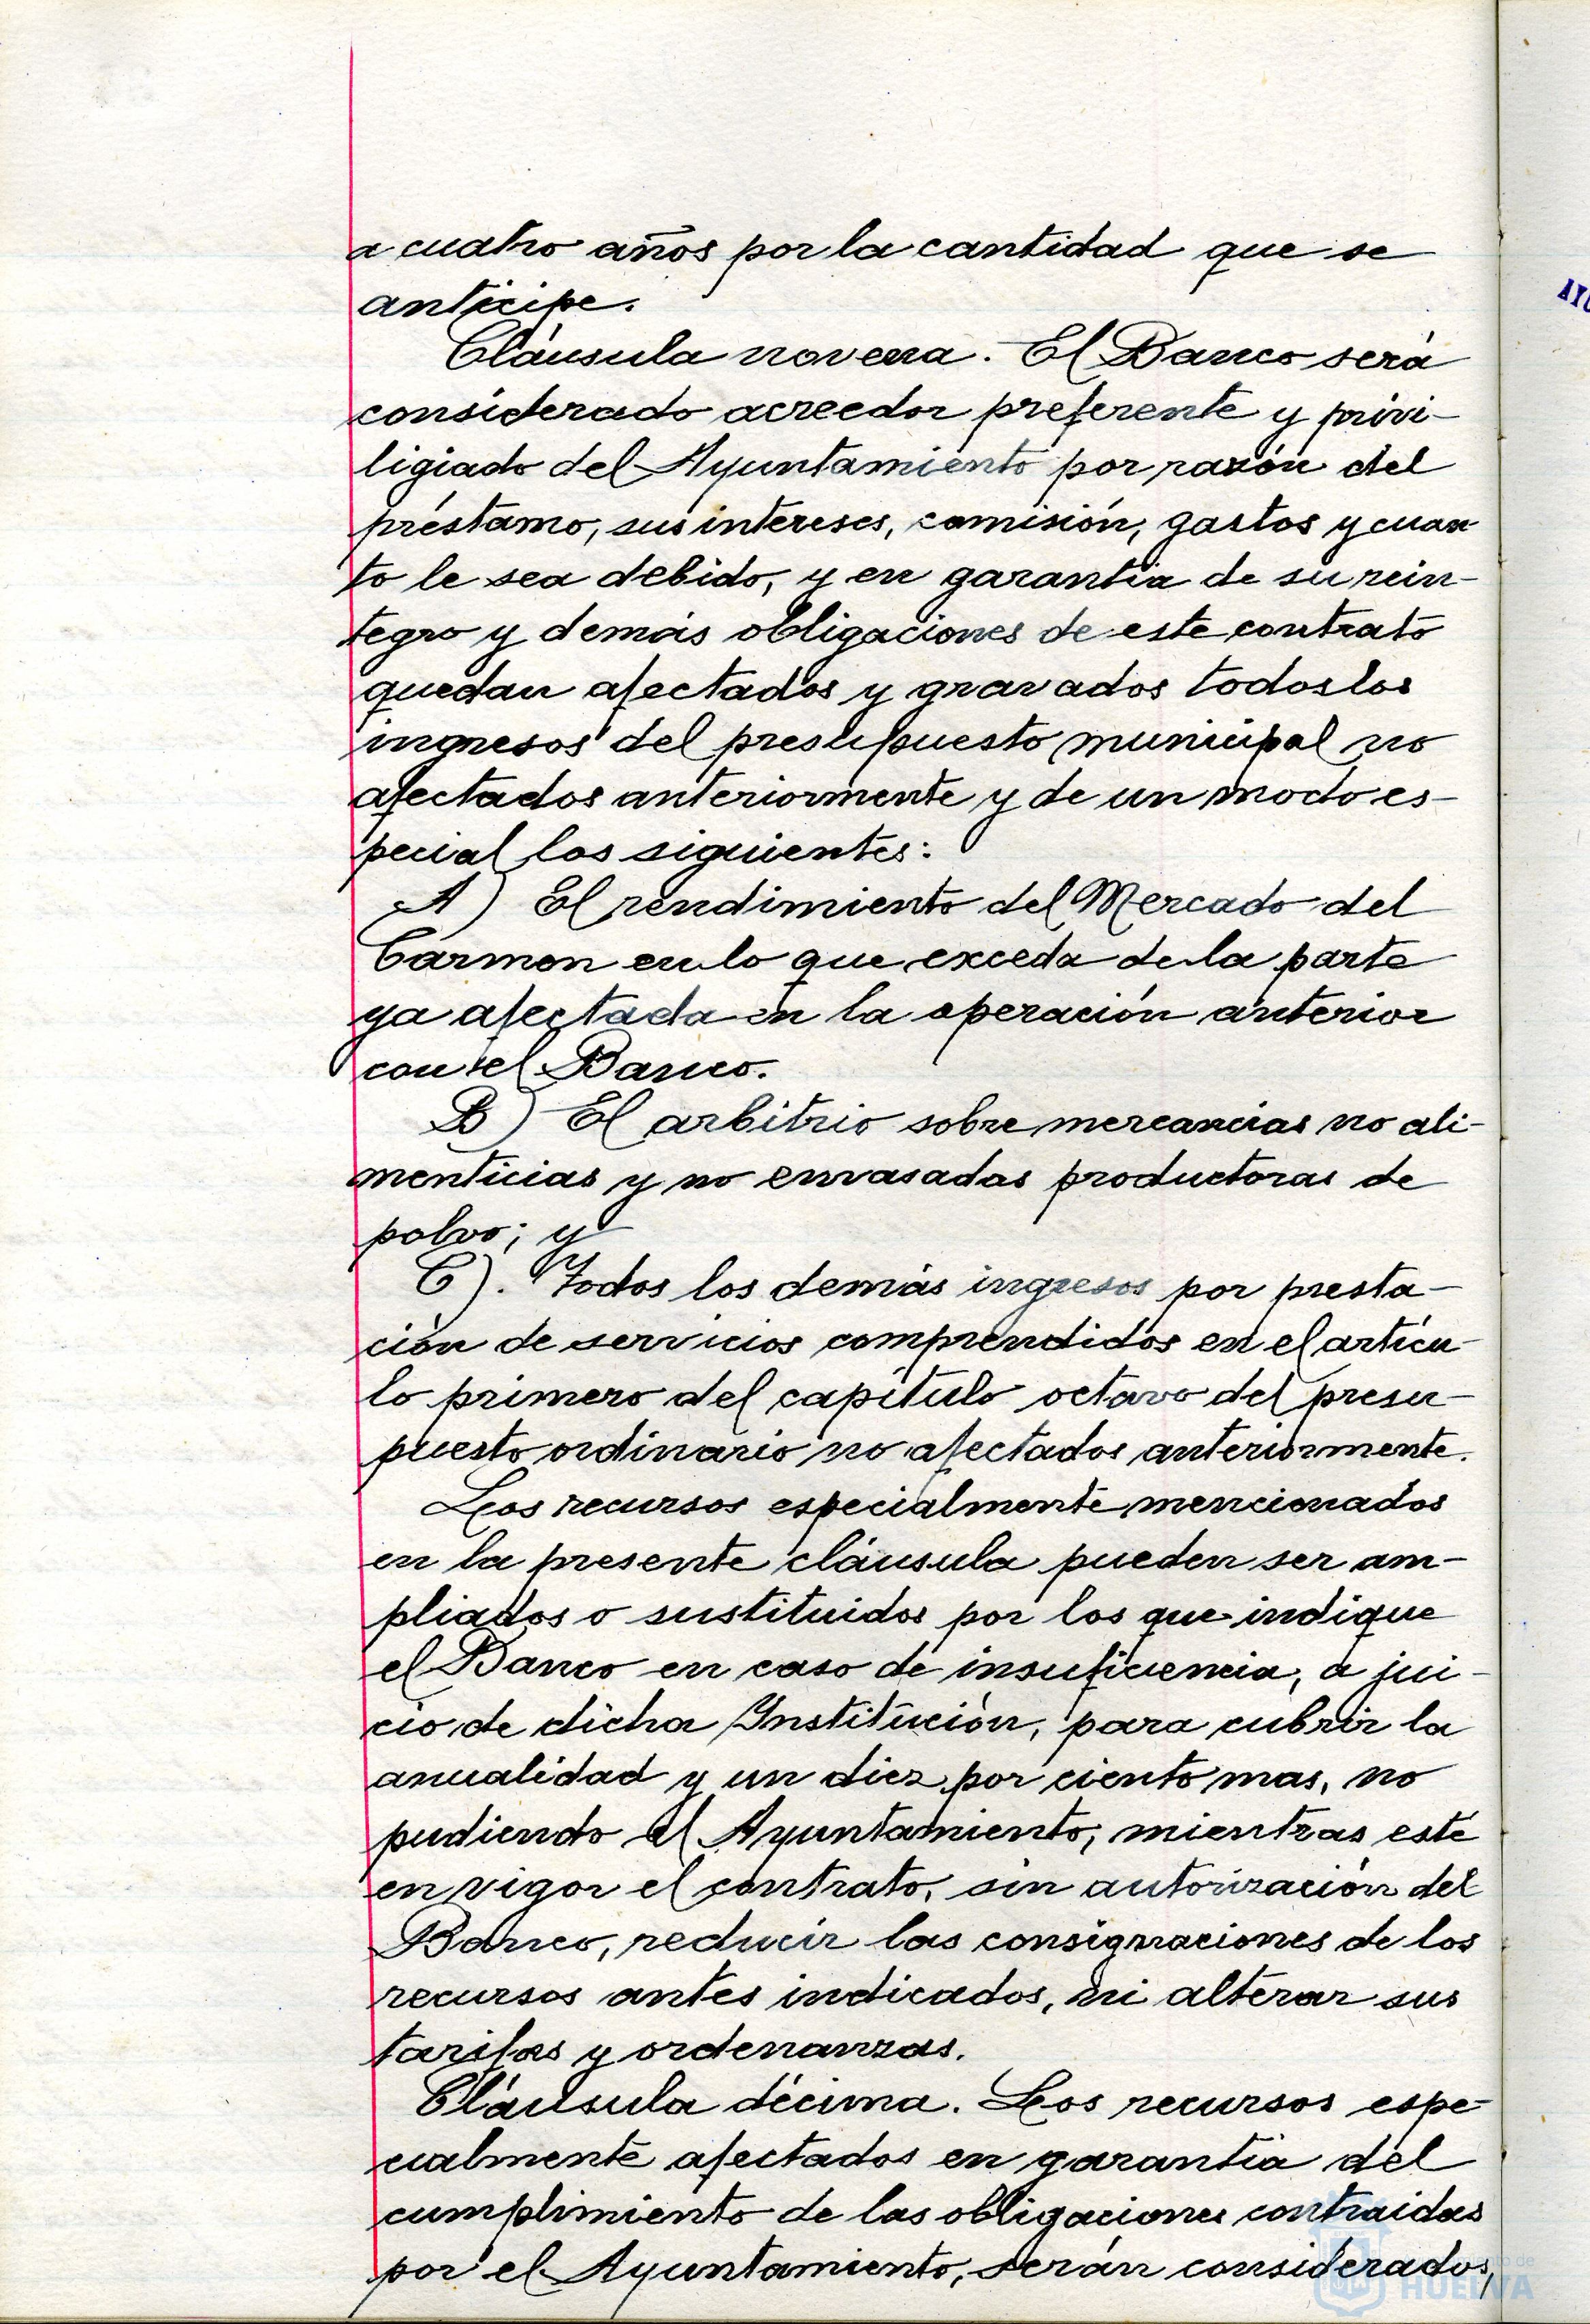 a cuatro años por la cantidad que se
anticipe.
Cláusula novena. El Banco será
considerado acreedor preferente y privi-
ligiado del Ayuntamiento por razón del
préstamo, sus intereses, comisión, gastos y cuan
to le sea debido, y en garantía de su rein-
tegro y demás obligaciones de este contrato
quedan afectados y gravados todos los
ingresos del presupuesto municipal no
afectados anteriormente y de un modo es-
pecial los siguientes:
A) El rendimiento del Mercado del
Carmen en lo que exceda de la parte
ya afectada en la operación anterior
con el Banco.
B) El arbitrio sobre mercancías no ali-
menticias y no envasadas productoras de
polvo; y
C). Todos los demás ingresos por presta-
ción de servicios comprendidos en el artícu-
lo primero del capítulo octavo del presu-
puesto ordinario no afectados anteriormente.
Los recursos especialmente mencionados
en la presente cláusula pueden ser am-
pliados o sustituidos por los que indique
el Banco en caso de insuficiencia, a jui-
cio de dicha Institución, para cubrir la
anualidad y un diez por ciento mas, no
pudiendo el Ayuntamiento, mientras esté
en vigor el contrato, sin autorización del
Banco, reducir las consignaciones de los
recursos antes indicados, ni alterar sus
tarifas y ordenanzas.
Cláusula décima. Los recursos espe-
cialmente afectados en garantía del
cumplimiento de las obligaciones contraidas
por el Ayuntamiento, serán considerados,
HUELVA